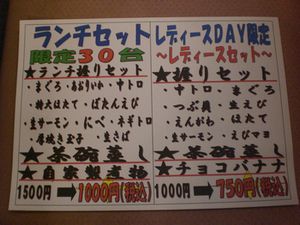 ランチセット
限定30台
★ランチ握りセット
・まぐろ・あおりいか・中トロ
・特大ほたて・ぼたんえび
・生サーモン・にべ・ネギトロ
・厚焼き玉子・生さば
★茶碗蒸し
★自家製煮物
1500円➡1000円(税込)
レディースDAY限定
～レディースセット～
★握りセット
・中トロ・まぐろ
・つぶ貝・生えび
・えんがわ・ほたて
・生サーモン・えびマヨ
★茶碗蒸し
★チョコバナナ
1000円➡750円(税込)